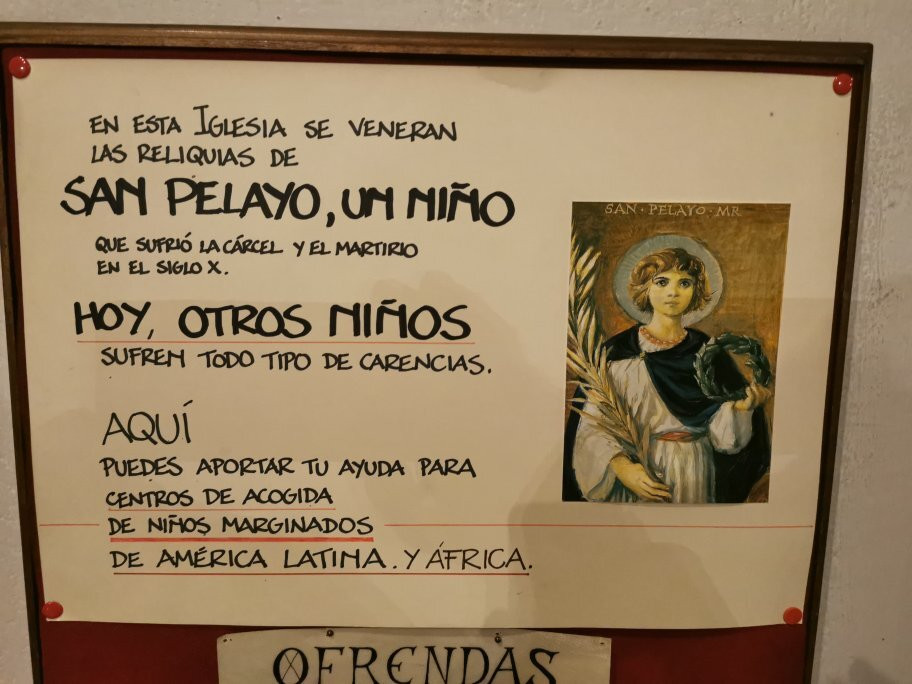 EN ESTA IGLESIA SE VENERAN
LAS RELIQUIAS DE
SAN PELAYO, UN NIÑO
QUE SUFRIÓ LA CÁRCEL Y EL MARTIRIO
EN EL SIGLO X.
HOY, OTROS NIÑOS
SUFREN TODO TIPO DE CARENCIAS.
AQUÍ
PUEDES APORTAR TU AYUDA PARA
CENTROS DE ACOGIDA
DE NIÑOS MARGINADOS
DE AMÉRICA LATINA. Y ÁFRICA.
SAN · PELAYO · MR
OFRENDAS